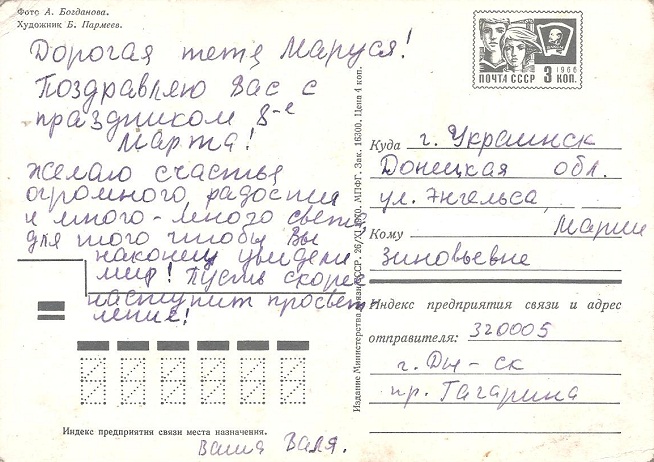 Фото А. Богданова.
Художник Б. Пармеев.
Дорогая тетя Маруся!
Поздравляю Вас с
праздником 8-е
Марта!
Желаю счастья
огромного радости
и много-много света,
для того чтобы Вы
наконец увидели
мир! Пусть скорее
наступит просвет
ление!
Ваша Валя.
Индекс предприятия связи места назначения.
Издание Министерства связи СССР. 26/XI-1970. МПФГ. Зак. 16300. Цена 4 коп.
ПОЧТА СССР 3 КОП. 1966
Куда г. Украинск
Донецкая обл.
ул. Энгельса
Кому Марии
Зиновьевне
Индекс предприятия связи и адрес
отправителя: 320005
г. Дн-ск
пр. Гагарина